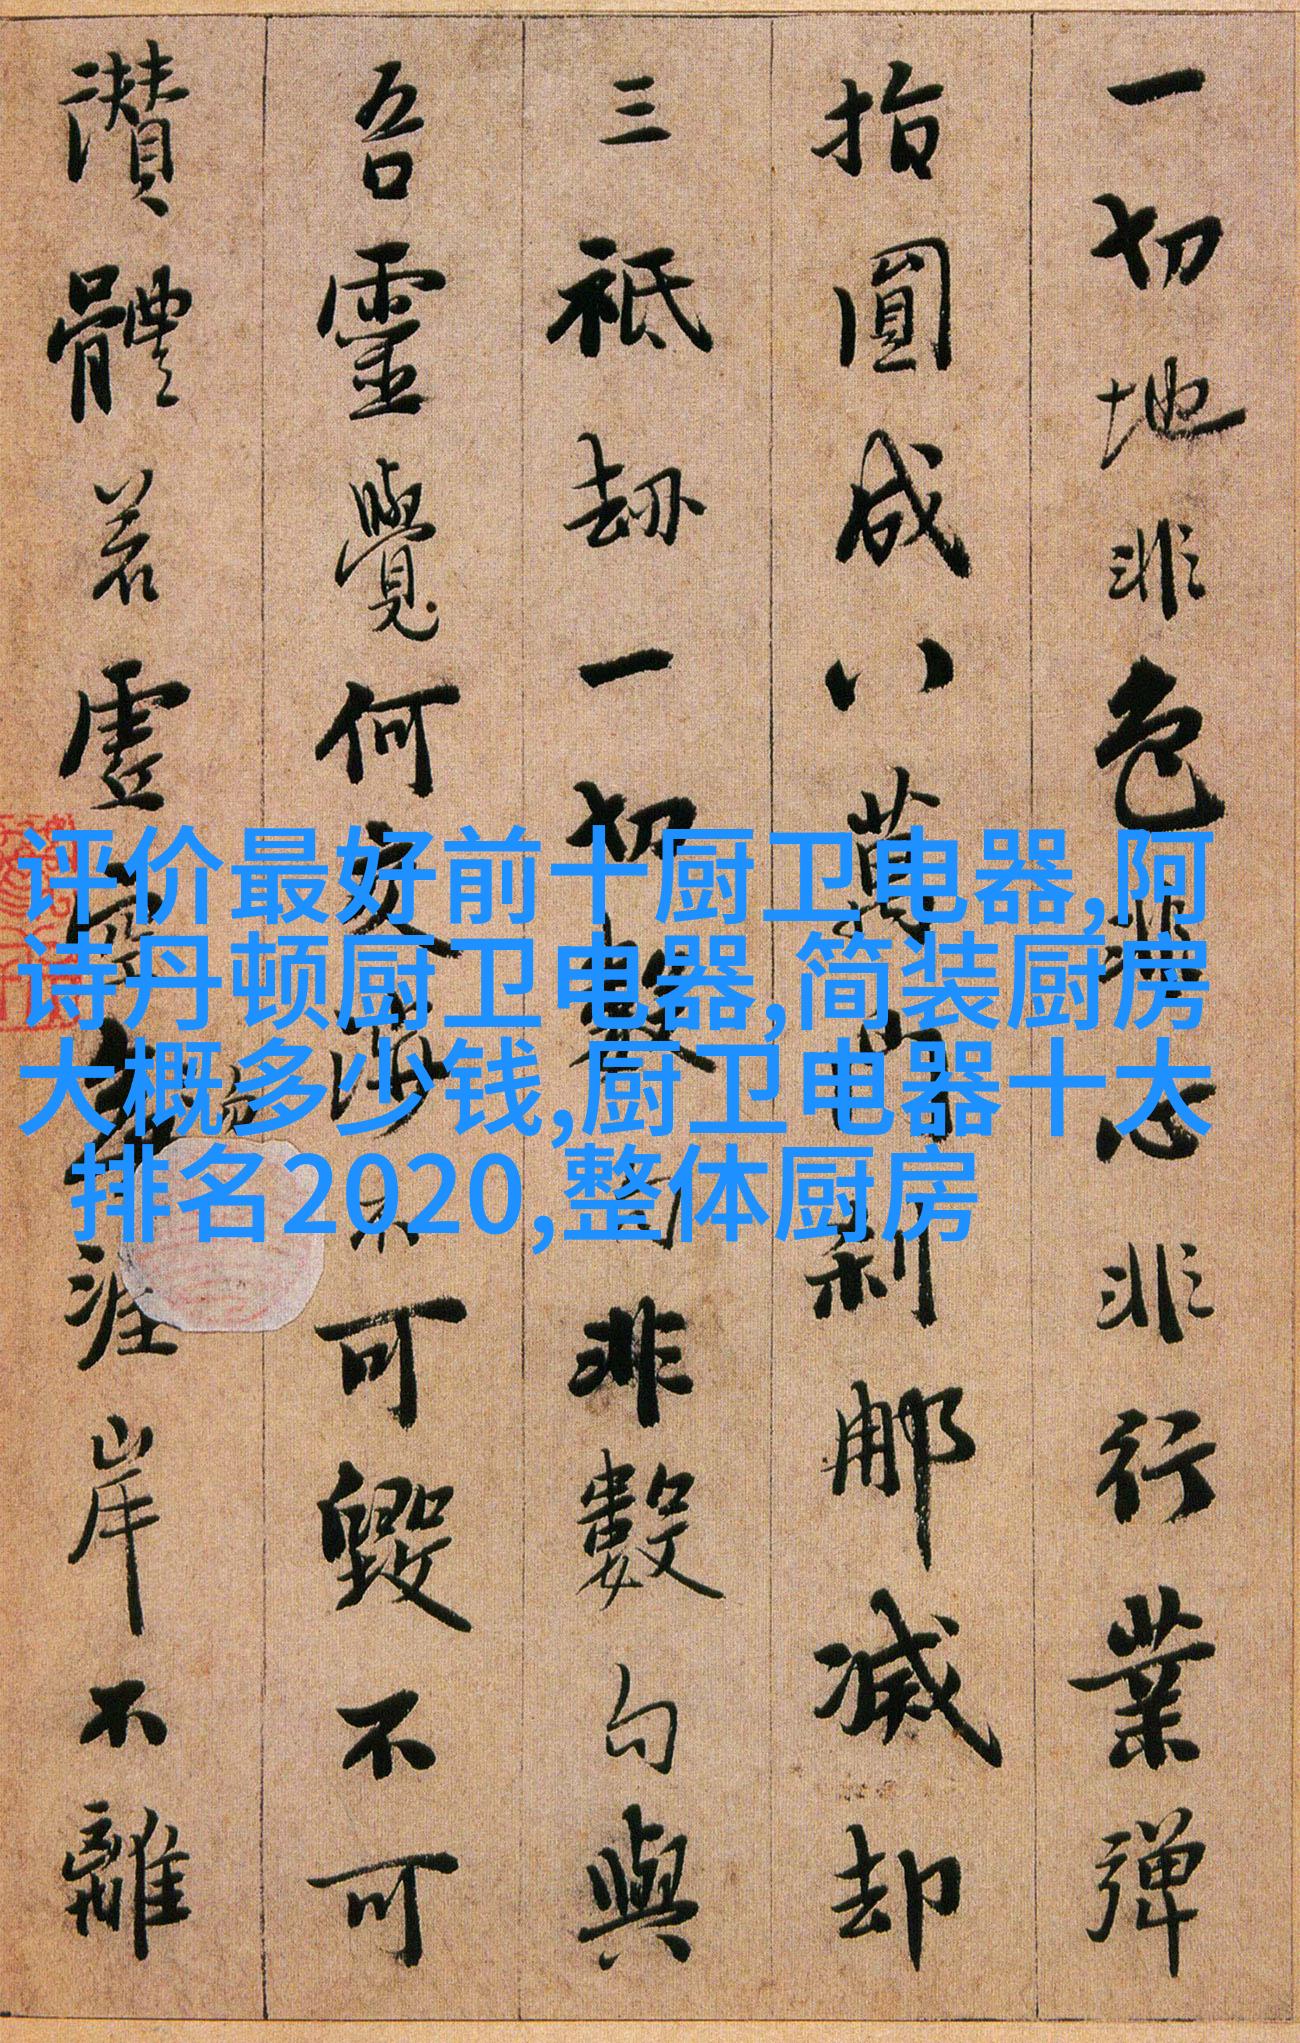 一切地非色非心非行業彈
指圓成八萬門刹那滅却
三祇劫一切數句非數句與
吾靈覺何交涉不可毀不可
讚體若虛空涯岸不離
评价最好前十厨卫电器,阿
诗丹顿厨卫电器,简装厨房
大概多少钱,厨卫电器十大
排名2020,整体厨房